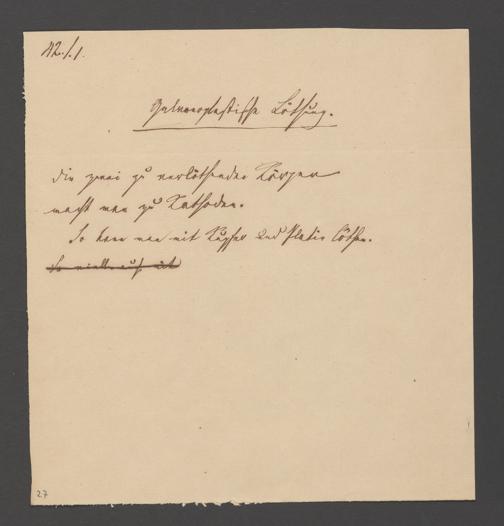 42./.1.
Galvanoplastische Löthung.
Die zwei zu verlöthenden Körper
macht man zu Kathoden.
So kann man mit Kupfer und Platin löthen.
So
27